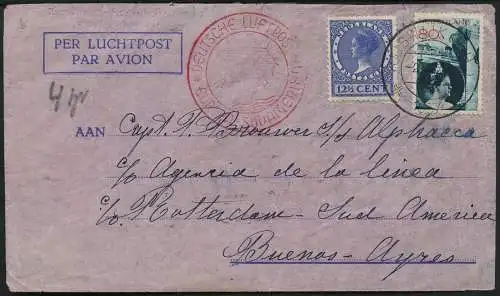 PER LUCHTPOST
PAR AVION
DEUTSCHE LUFTPOST
SÜDAMERIKA
NEDERLAND
12½ CENT
80
4 gr
AAN
Capt. P. Brouwer s/s Alphacca
c/o Agencia de la linea
c/o Rotterdam - Sud America
Buenos-Ayres